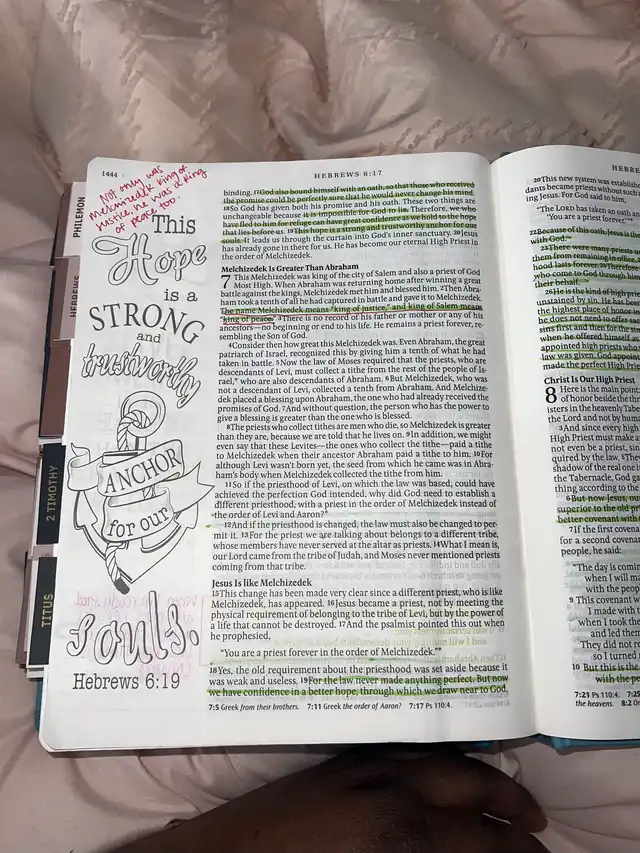 1444
HEBREWS 6:17
Not only was
Melchizedk king of
justice, He was a king
of peace too.
This
Hope
is a
STRONG
and
trustworthy
ANCHOR
for our
souls.
Hebrews 6:19
PHILEMON
HEBREWS
2 TIMOTHY
TITUS
binding. 17God also bound himself with an oath, so that those who received
the promise could be perfectly sure that he would never change his mind.
18So God has given both his promise and his oath. These two things are
unchangeable because it is impossible for God to lie. Therefore, we who
have fled to him for refuge can have great confidence as we hold to the hope
that lies before us. 19This hope is a strong and trustworthy anchor for our
souls. It leads us through the curtain into God's inner sanctuary. 20Jesus
has already gone in there for us. He has become our eternal High Priest in
the order of Melchizedek.
Melchizedek Is Greater Than Abraham
7 This Melchizedek was king of the city of Salem and also a priest of God
Most High. When Abraham was returning home after winning a great
battle against the kings, Melchizedek met him and blessed him. 2Then Abra-
ham took a tenth of all he had captured in battle and gave it to Melchizedek.
The name Melchizedek means "king of justice," and king of Salem means
"king of peace." 3There is no record of his father or mother or any of his
ancestors—no beginning or end to his life. He remains a priest forever, re-
sembling the Son of God.
4Consider then how great this Melchizedek was. Even Abraham, the great
patriarch of Israel, recognized this by giving him a tenth of what he had
taken in battle. 5Now the law of Moses required that the priests, who are
descendants of Levi, must collect a tithe from the rest of the people of Is-
rael,* who are also descendants of Abraham. 6But Melchizedek, who was
not a descendant of Levi, collected a tenth from Abraham. And Melchize-
dek placed a blessing upon Abraham, the one who had already received the
promises of God. 7And without question, the person who has the power to
give a blessing is greater than the one who is blessed.
8The priests who collect tithes are men who die, so Melchizedek is greater
than they are, because we are told that he lives on. 9In addition, we might
even say that these Levites—the ones who collect the tithe—paid a tithe
to Melchizedek when their ancestor Abraham paid a tithe to him. 10For
although Levi wasn't born yet, the seed from which he came was in Abra-
ham's body when Melchizedek collected the tithe from him.
11So if the priesthood of Levi, on which the law was based, could have
achieved the perfection God intended, why did God need to establish a
different priesthood, with a priest in the order of Melchizedek instead of
the order of Levi and Aaron?*
12And if the priesthood is changed, the law must also be changed to per-
mit it. 13For the priest we are talking about belongs to a different tribe,
whose members have never served at the altar as priests. 14What I mean is,
our Lord came from the tribe of Judah, and Moses never mentioned priests
coming from that tribe.
Jesus Is like Melchizedek
15This change has been made very clear since a different priest, who is like
Melchizedek, has appeared. 16Jesus became a priest, not by meeting the
physical requirement of belonging to the tribe of Levi, but by the power of
a life that cannot be destroyed. 17And the psalmist pointed this out when
he prophesied,
"You are a priest forever in the order of Melchizedek."*
18Yes, the old requirement about the priesthood was set aside because it
was weak and useless. 19For the law never made anything perfect. But now
we have confidence in a better hope, through which we draw near to God.
7:5 Greek from their brothers. 7:11 Greek the order of Aaron? 7:17 Ps 110:4.
HEBRE
20This new system was established
dants became priests without such
ing Jesus. For God said to him,
"The LORD has taken an oath a
'You are a priest forever.'"*
22Because of this oath, Jesus is th
with God.
23There were many priests u
them from remaining in office.
hood lasts forever. 25Therefore
who come to God through him
their behalf.
26He is the kind of high prie
unstained by sin. He has been
the highest place of honor in
he does not need to offer sa
sins first and then for the
when he offered himself as
appointed high priests who
law was given, God appoin
made the perfect High Prie
Christ Is Our High Priest
8 Here is the main point
of honor beside the thr
isters in the heavenly Tabe
the Lord and not by hum
3And since every high
High Priest must make a
not even be a priest, sin
quired by the law. 5They
shadow of the real one i
the Tabernacle, God ga
thing according to the
6But now Jesus, our
superior to the old pri
better covenant with
7If the first covena
for a second covenan
people, he said:
"The day is coming
when I will m
with the peo
9 This covenant w
I made with t
when I took the
and led them
They did not re
so I turned
10 But this is the
with the pe
7:21 Ps 110:4. 7:25
the heavens. 8:2 Or